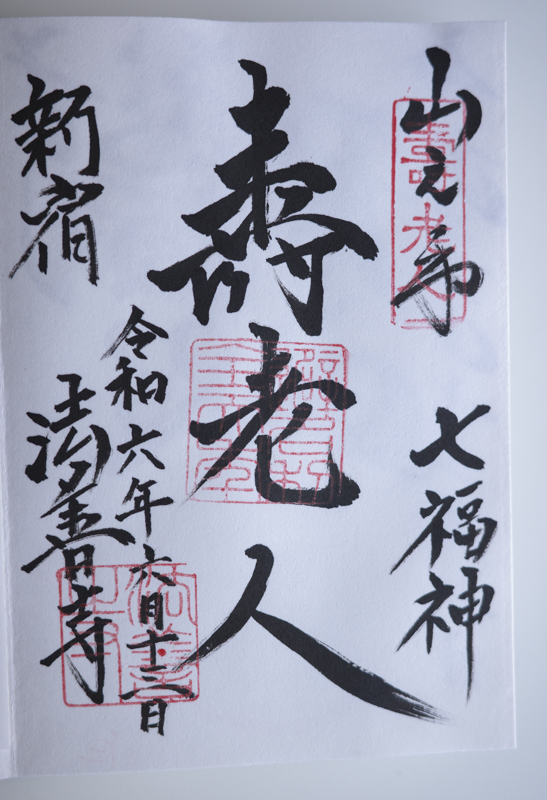 山之手 七福神
壽老人
令和六年六月十三日
新宿 法善寺
壽老人